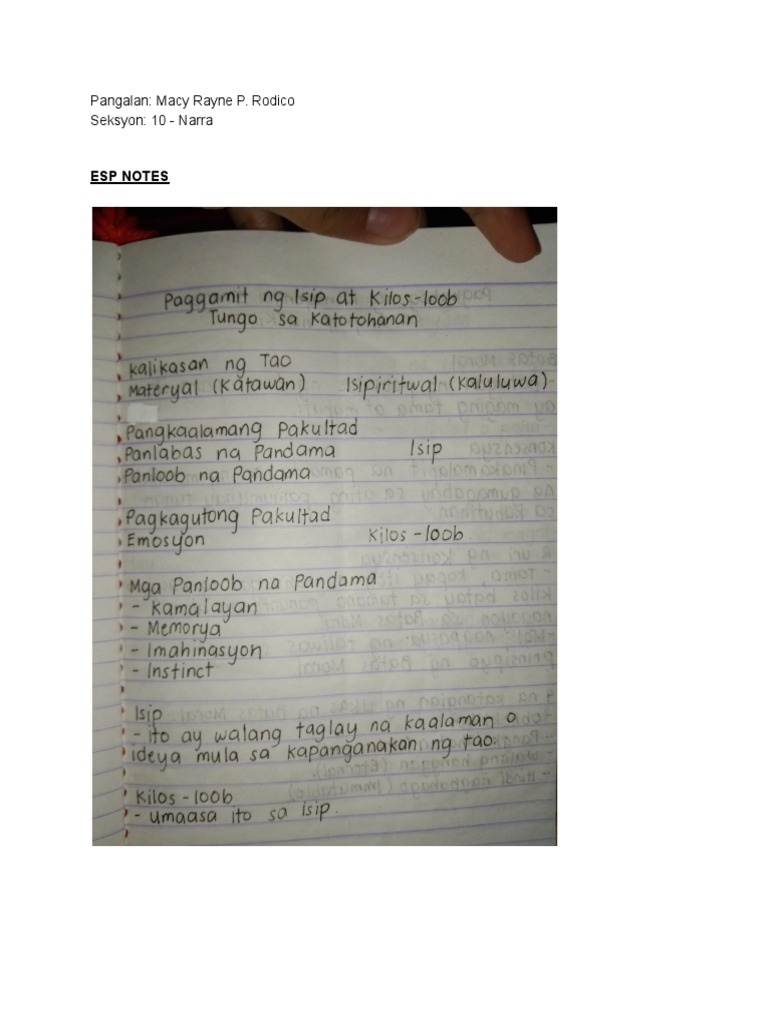 Pangalan: Macy Rayne P. Rodico
Seksyon: 10 - Narra
ESP NOTES
Paggamit ng Isip at Kilos-loob
Tungo sa Katotohanan
Kalikasan ng Tao
Materyal (Katawan) Isipiritwal (Kaluluwa)
Pangkaalamang Pakultad
Panlabas na Pandama Isip
Panloob na Pandama
Pagkagutong Pakultad
Emosyon Kilos-loob
Mga Panloob na Pandama
- Kamalayan
- Memorya
- Imahinasyon
- Instinct
Isip
- ito ay walang taglay na kaalaman o
ideya mula sa kapanganakan ng tao.
Kilos-loob
- umaasa ito sa isip.